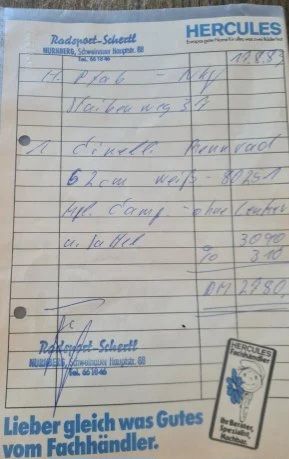 Radsport-Schertl
NÜRNBERG, Schweinauer Hauptstr. 88
Tel. 66 18 46
HERCULES
17.8.83
H. Pfab - Nbg
1 Cinelli Rennrad
62cm weiß - 80251
kpl. Camp. - ohne Lenker
u. Sattel 3090
% 310
DM 2780,-
Radsport-Schertl
NÜRNBERG, Schweinauer Hauptstr. 88
Tel. 66 18 46
HERCULES
Fachhändler
Ihr Berater,
Spezialist,
Nachbar.
Lieber gleich was Gutes
vom Fachhändler.